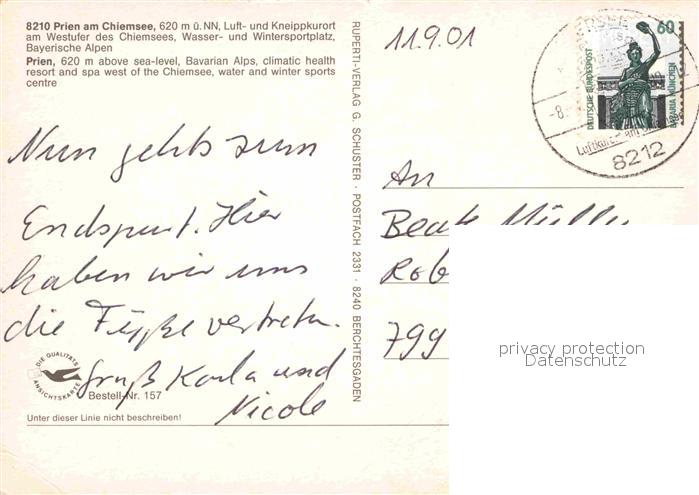 8210 Prien am Chiemsee, 620 m ü. NN, Luft- und Kneippkurort
am Westufer des Chiemsees, Wasser- und Wintersportplatz,
Bayerische Alpen
Prien, 620 m above sea-level, Bavarian Alps, climatic health
resort and spa west of the Chiemsee, water and winter sports
centre
Nun gehts zum
Endspurt. Hier
haben wir uns
die Füße vertreten.
Gruß Karla und
Nicole
DIE QUALITÄTS
ANSICHTSKARTE
Bestell-Nr. 157
Unter dieser Linie nicht beschreiben!
RUPERTI-VERLAG G. SCHUSTER · POSTFACH 2331 · 8240 BERCHTESGADEN
11.9.01
60
DEUTSCHE BUNDESPOST
BAVARIA MÜNCHEN
Luftkurort am
8212
An
Beate Müller
Rob
799
privacy protection
Datenschutz